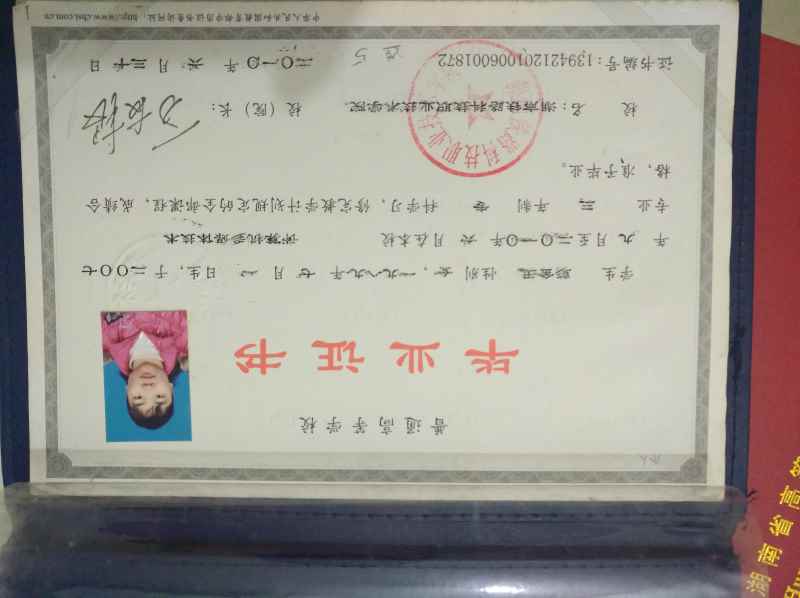 普通高等学校
毕业证书
学生 性别 女，一九八九年 七 月 一 日生，于二〇〇七
年 九 月至二〇一〇年 六 月在本校 计算机多媒体技术
专业 三 年制 专 科学习，修完教学计划规定的全部课程，成绩合
格，准予毕业。
校 名：湖南铁路科技职业技术学院 校（院）长：
证书编号：139421201006001872 二〇一〇年 六 月 三十 日
中华人民共和国教育部学历证书查询网址：http://www.chsi.com.cn
湖南省高等